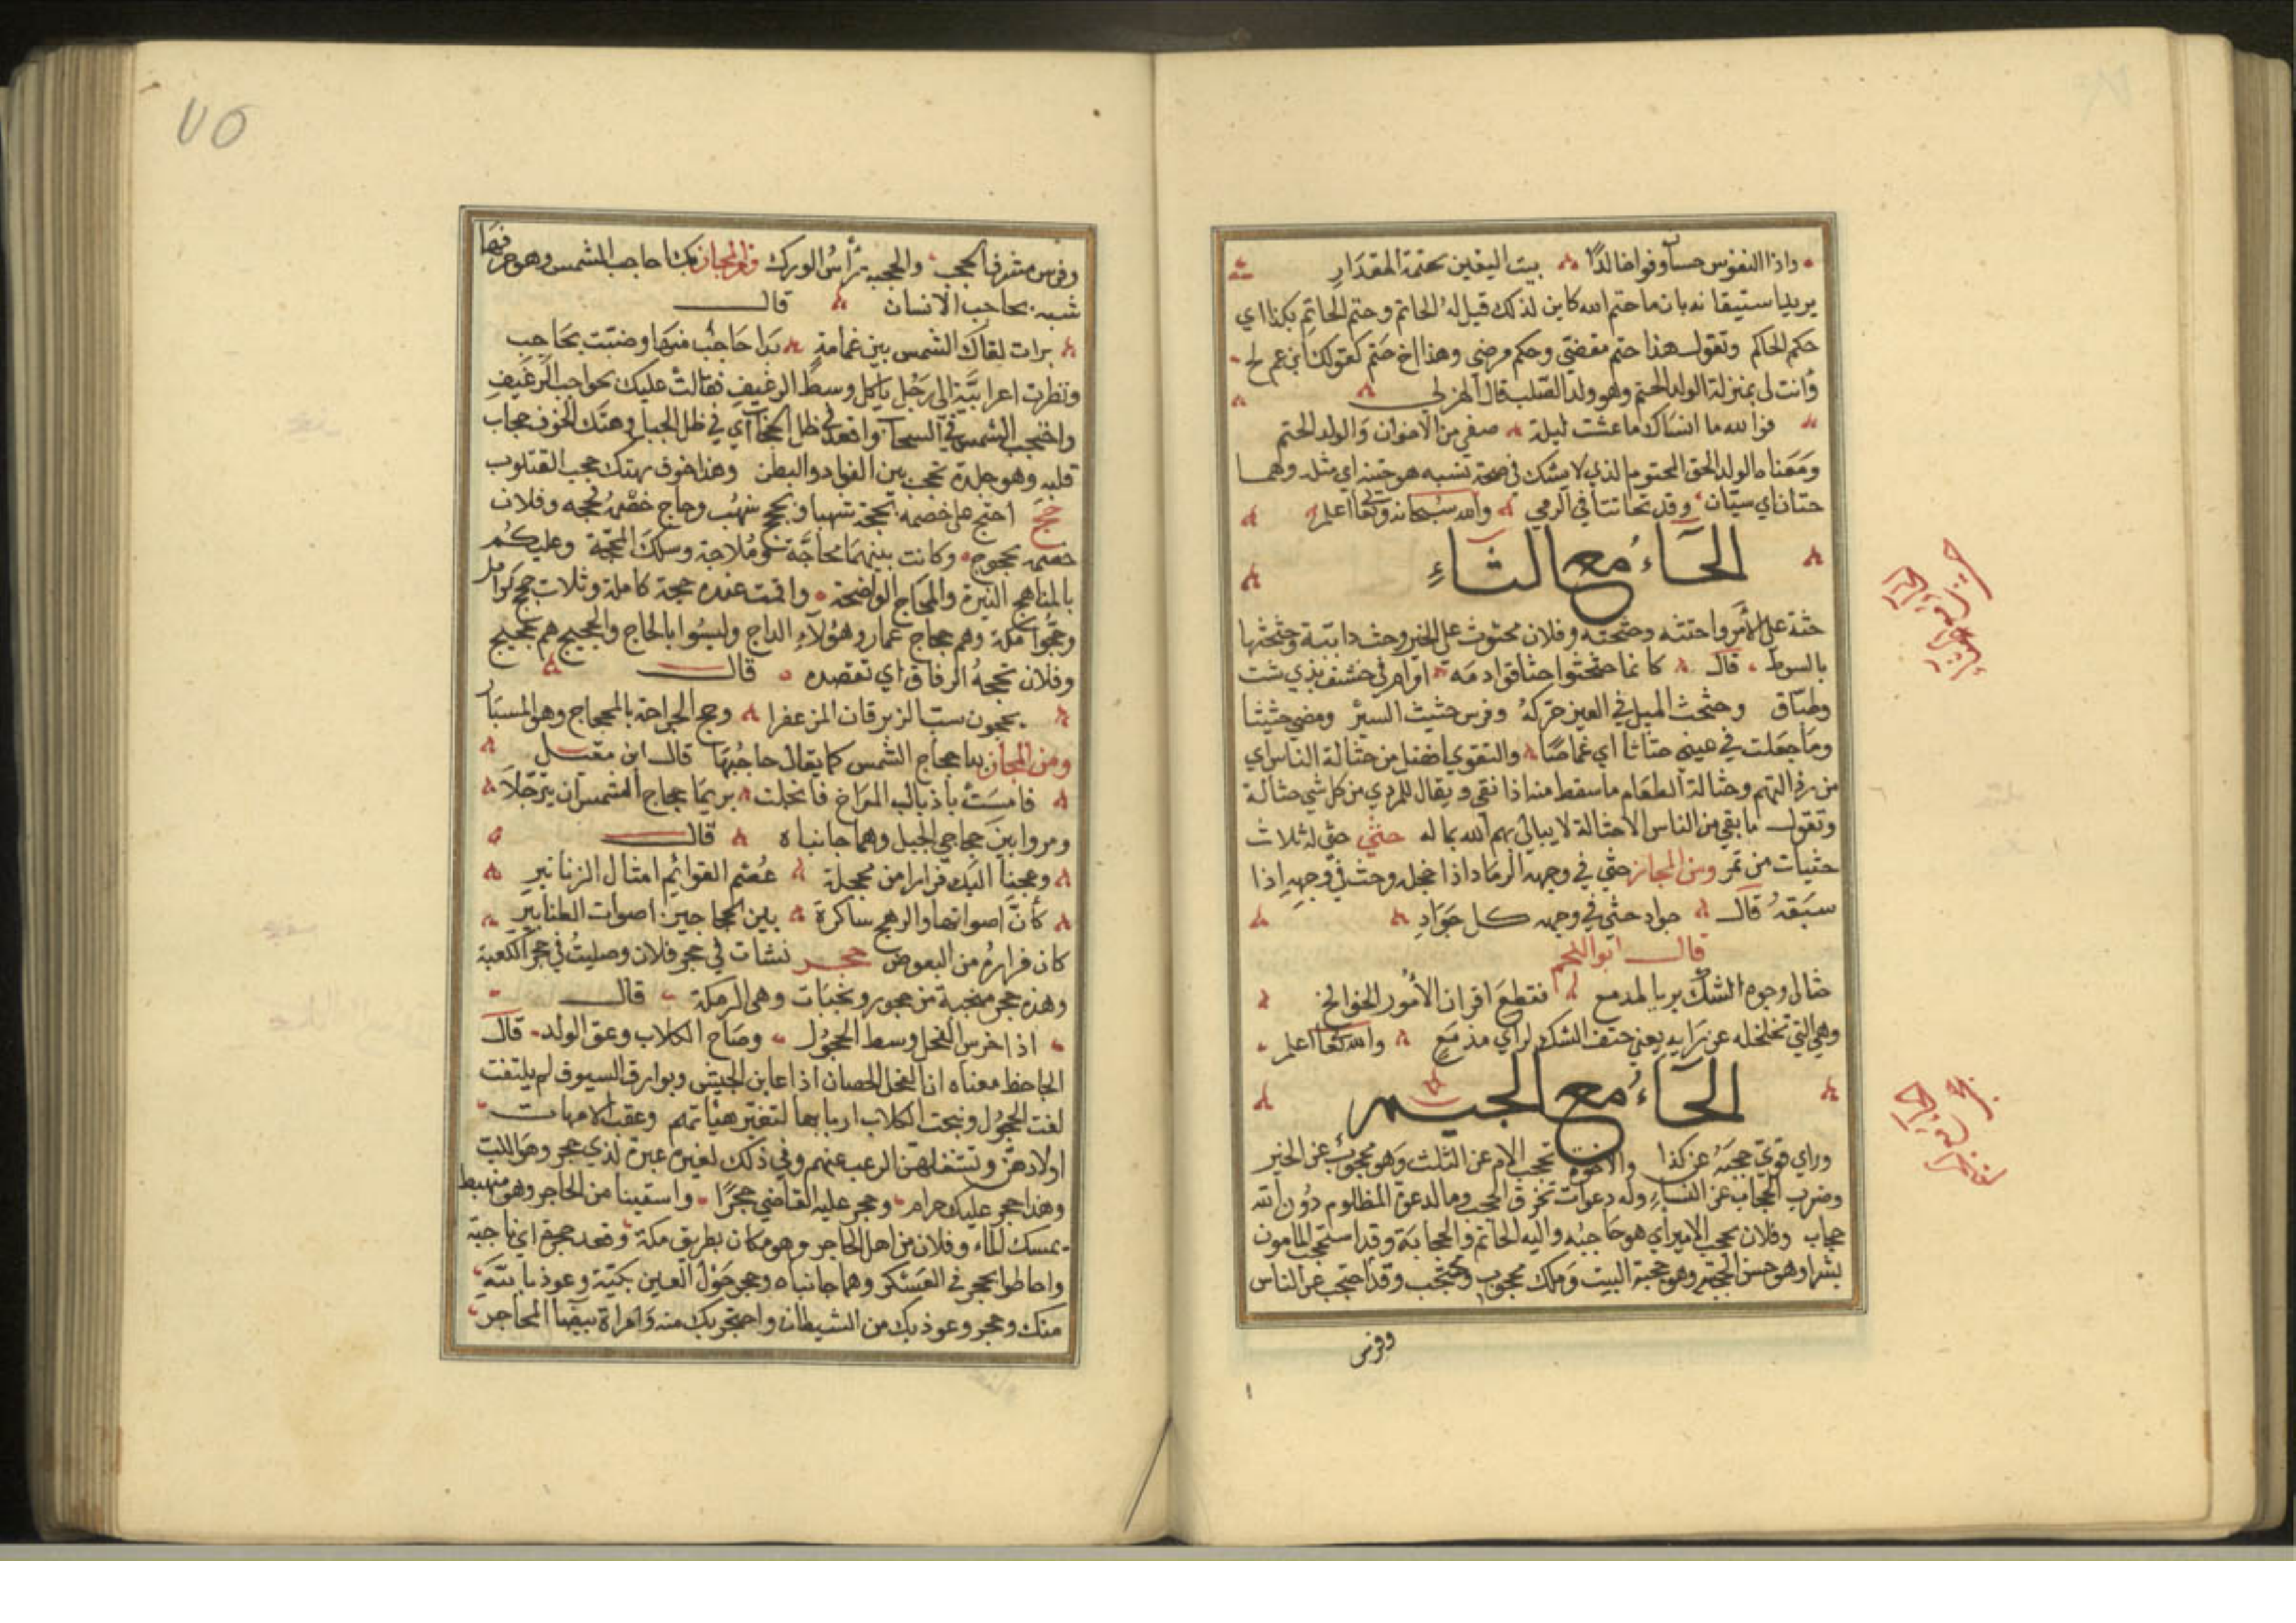 واذا النفوس حساوفوا خالدا بيت اليقين بحتمة المقدار
يريد استيقانه بان ما حتم الله كاين لذلك قيل له الحاتم وحتم الحاتم بكذا اي
حكم الحاكم وتقول هذا حتم مقضي وحكم مرضي وهذا اخ حتم كقولك ابن عم لح
وأنت لي بمنزلة الولد الحتم وهو ولد الصلب قال الهزلي
فوالله ما انساك ما عشت ليلة صفي من الاخوان والولد الحتم
ومعناه الولد الحق المحتوم الذي لا يشك في صحة نسبه هو حتنه اي مثله وهما
حتنان اي سيان وقد تحاتنا في الرمي والله سبحانه وتعالى اعلم
الحآء مع الثآء
حثه على الأمر واحتثه وحثحثه وفلان محثوث على الخير وحث دابته وحثحثها
بالسوط قال كانما حثحثوا حثا قوادمه او ام خشف بذي شث
وطباق وحثحث الميل في العين حركه وفرس حثيث السير ومضى حثيثا
وما جعلت في عيني حثاثا اي غماضا والتقوي افضل من حثالة الناس اي
من رذالتهم وحثالة الطعام ما سقط منه اذا نقي ويقال للردي من كل شي حثالة
وتقول ما بقي من الناس الا حثالة لا يبالي بهم الله باله حثي حثى له ثلاث
حثيات من تمر ومن المجاز حثى في وجهه الرماد اذا خجله وحث في وجهه اذا
سبقه قال جواد حثى في وجهه كل جواد
قال ابو النجم
حثا لي وجوه الشك بريا لمدمع فقطع اقران الأمور الخوالخ
وهي التي تخلخله عن رايه يعني حتف الشك لراي مدمع والله تعالى اعلم
الحآء مع الجيم
وراي قوي حجبته عن كذا والاخوة تحجب الام عن الثلث وهو محجوب عن الخير
وضرب الحجاب عن النساء وله دعوات تخرق الحجب وما لدعوة المظلوم دون الله
حجاب وفلان يحجب الامير اي هو حاجبه واليه الخاتم والحجابة وقد استحجب المامون
بشرا وهو حسن الحجبة وهو حجبة البيت وملك محجوب ومحتجب وقد احتجب عن الناس
وفرس
٧٥
وفرس مشرف الحجب والحجبة رأس الورك ومن المجاز بدا حاجب الشمس وهو حرفها
شبه بحاجب الانسان قال
برات لقاك الشمس بين غمامة بدا حاجب منها وضنت بحاجب
ونظرت اعرابية الى رجل ياكل وسط الرغيف فقالت عليك بحواجب الرغيف
واحتجب الشمس في السحاب واقعد في ظل الحجاب اي في ظل الجبل وهتك الخوف حجاب
قلبه وهو جلدة تحجب بين الفواد والبطن وهذا خوف يهتك حجب القلوب
حجج احتج على خصمه بحجة شهبا وبحجج شهب وحاج خصمه فحجه وفلان
خصمه محجوج وكانت بينهما محاجة وملاجة وسلك المحجة وعليكم
بالمناهج النيرة والمحاج الواضحة واقمت عنده حجة كاملة وثلاث حجج كوامل
وحجوا مكة وهم حجاج عمار وهؤلاء الداج وليسوا بالحاج والحجيج هم عجيج
وفلان تحجه الرفاق اي تقصده قال
يحجون سب الزبرقان المزعفرا وحج الجراحة بالمحجاج وهو المسبار
ومن المجاز بدا حجاج الشمس كما يقال حاجبها قال ابن مقبل
فامست باذناب المراخ فانجلت بريما حجاج الشمس ان يترجلا
ومروا بين حجاجي الجبل وهما جانباه قال
وعجنا اليك فرارا من محجلة عثم القوائم امثال الزنانير
كأن اصواتها والرهج ساكرة بين الحجاجين اصوات الطنابير
كان فراره من البعوض حجر نشات في حجر فلان وصليت في حجر الكعبة
وهذه حجر منجبة من حجور ونجبات وهي الرمكة قال
اذا خرس الفحل وسط الحجور وصاح الكلاب وعق الولد قال
الجاحظ معناه ان الفحل الحصان اذا عاين الجيش وبوارق السيوف لم يلتفت
لفت الحجور ونبحت الكلاب اربابها لتغير هيئاتهم وعقت الامهات
اولادهن وتشغلهن الرعب عنهم وفي ذلك لعبرة عبرة لذي حجر وهو اللب
وهذا حجر عليك حرام وحجر عليه القاضي حجرا واستقينا من الحاجر وهو منهبط
يمسك الماء وفلان من اهل الحاجر وهو مكان بطريق مكة وقعد حجرة اي ناحية
واحاطوا بحجر في العسكر وهما جانباه وحجر حول العين بكية وعوذ بالله
منك وحجر وعوذ بك من الشيطان واحتجر بك منه وامراة بيضا المحاجر